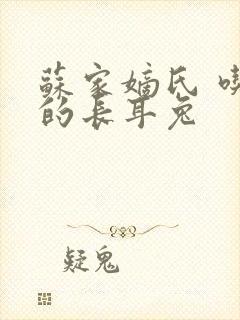 蘇家嫡氏
的長耳兔
疑鬼